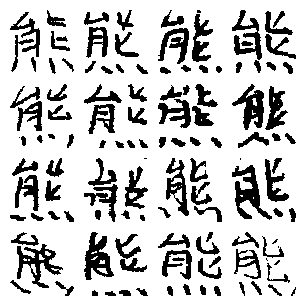 熊熊熊熊
熊熊熊熊
熊熊熊熊
熊熊熊熊